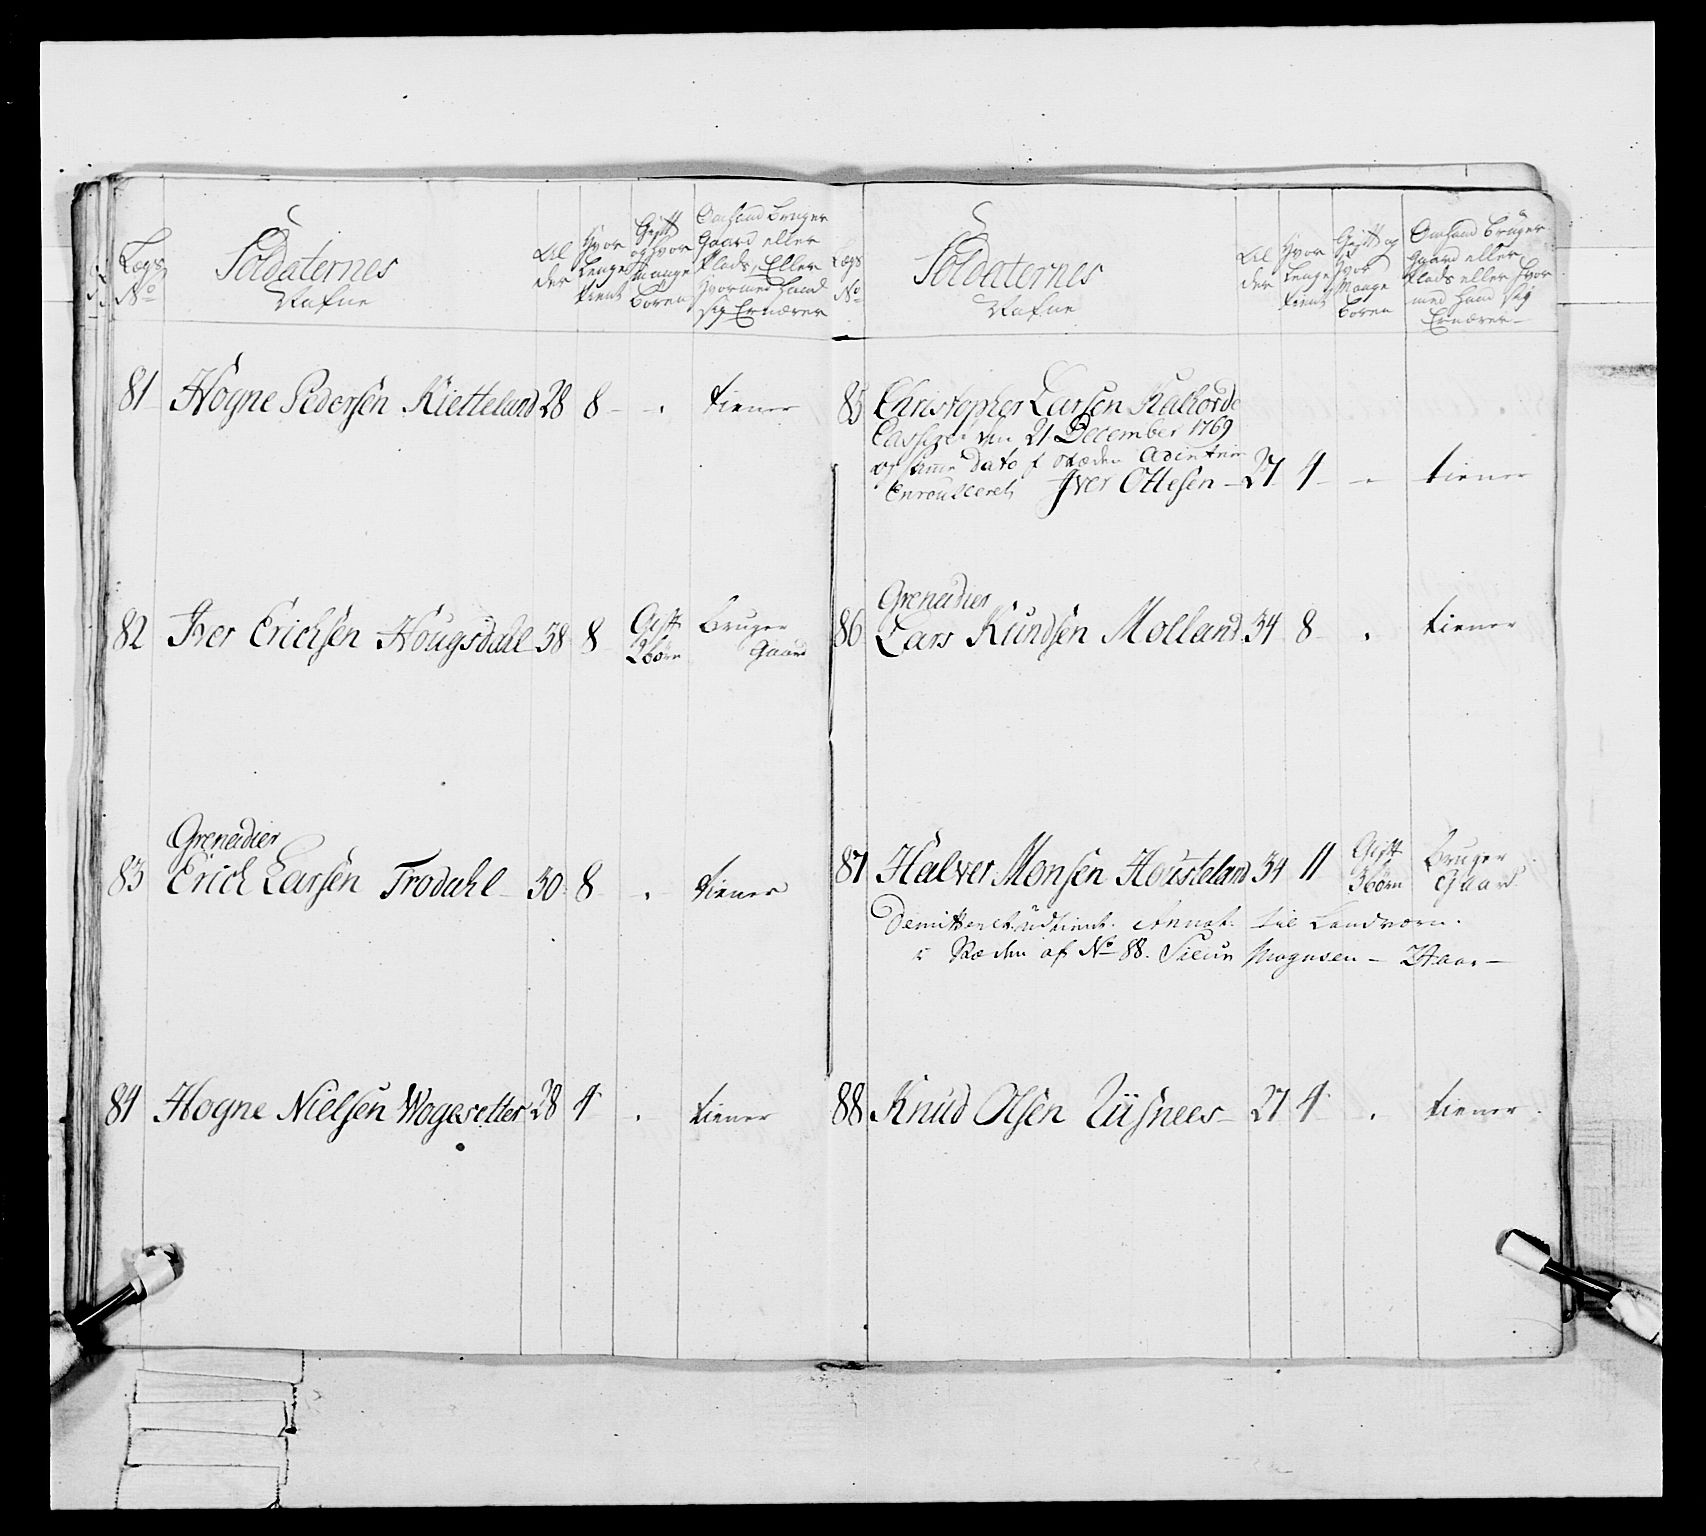 Lægs
No
Soldaternes
Nafne
Al
der
Hvor
lenge
tient
Gift
og hvor
mange
boren
Om hand bruger
Gaard eller
Plads, Eller
hvormed hand
sig Ernærer
81 Hogne Pedersen Kietteland 28 8 - tiener
82 Iver Erichsen Hougsdahl 38 8 Gift Bruger
2 børn Gaard
Grenadier
83 Erich Larsen Trodahl 30 8 tiener
84 Hogne Nielsen Wogesetter 28 4 tiener
Lægs
No
Soldaternes
Nafne
Al
der
Hvor
lenge
tient
Gift og
Hvor
Mange
boren
Om hand Bruger
Gaard eller
Plads eller hvor
med hand sig
Ernærer
85 Christopher Larsen
Casseret den 21 December 1769
og samme dato
Enroulleret Iver Ottesen - 27 4 - tiener
Grenadier
86 Lars Knudsen Molland 34 8 tiener
87 Halver Monsen Housteland 34 11 Gift Bruger
3 børn Gaard
Demitteret udtient. Annot. til Landværn.
i Stæden af No 88. Siuur Mognusen - Aar -
88 Knud Olsen Riisnees - 27 4 tiener